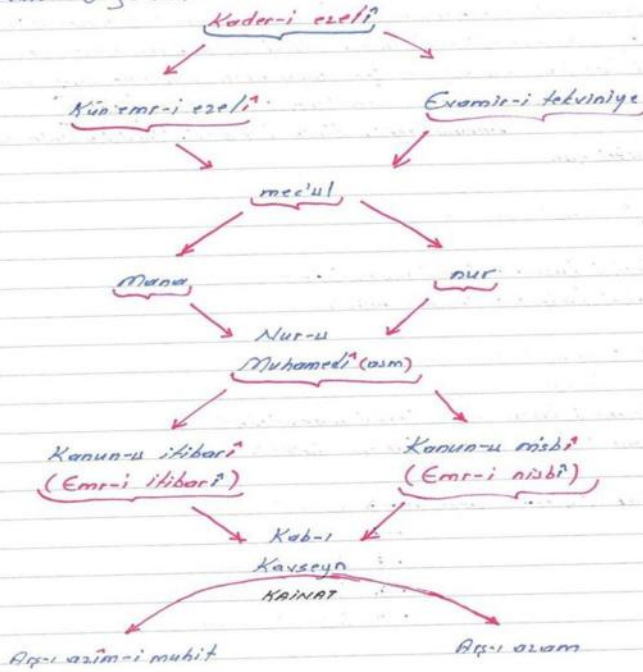 Kader-i ezelî
Kün emr-i ezelî
Evamir-i tekviniye
mec'ul
Mana
nur
Nur-u
Muhamedî (asm)
Kanun-u itibarî
(Emr-i itibarî)
Kanun-u nisbî
(Emr-i nisbî)
Kab-ı
Kavseyn
KAİNAT
Arş-ı azîm-i muhit
Arş-ı azam